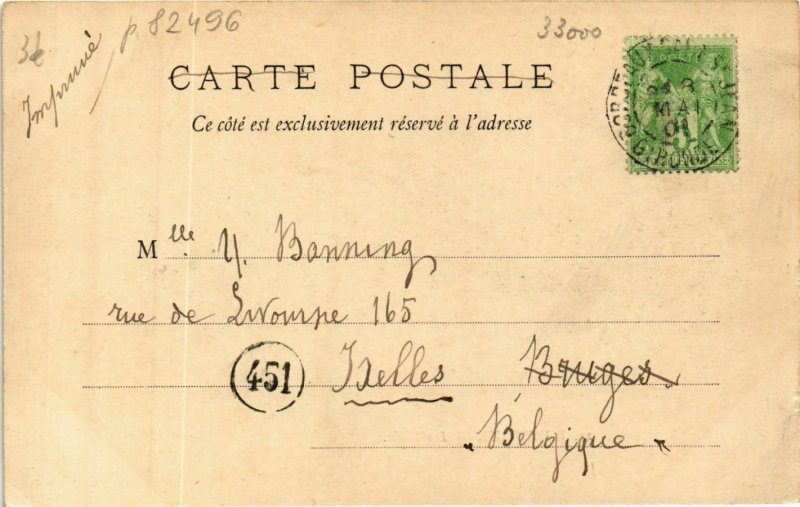 Imprimé
p 82496
33000
CARTE POSTALE
Ce côté est exclusivement réservé à l'adresse
BORDEAUX
MAI
01
GIRONDE
Mlle Y. Banning
rue de Livourne 165
451
Ixelles Bruges
"Belgique"